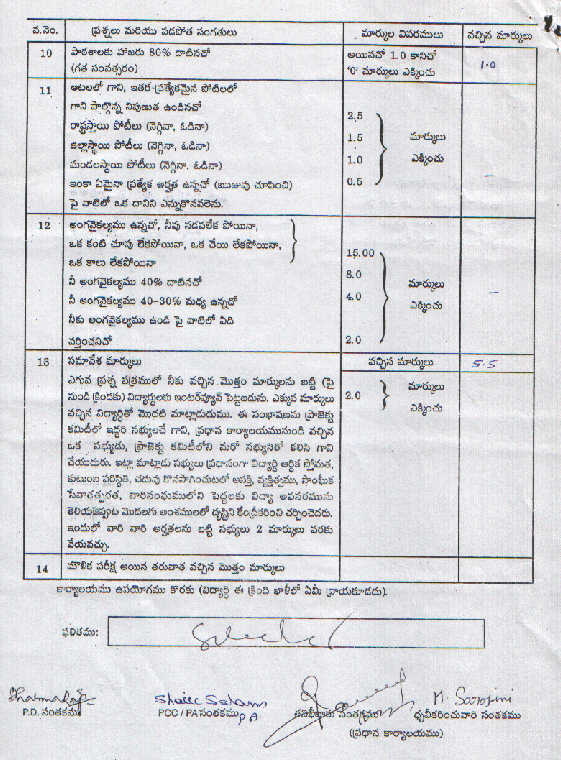 వ.నెం. ప్రశ్నలు మరియు పడపోత సంగతులు మార్కుల వివరములు వచ్చిన మార్కులు
10 పాఠశాలకు హాజరు 80% దాటినచో అయినచో 1.0 కానిచో 1.0
(గత సంవత్సరం) '0' మార్కులు ఎక్కించు
11 ఆటలలో గాని, ఇతర ప్రత్యేకమైన పోటీలలో
గాని పాల్గొన్న నిపుణుత ఉండినచో 2.5
రాష్ట్రస్థాయి పోటీలు (నెగ్గినా, ఓడినా) 1.5 మార్కులు
జిల్లాస్థాయి పోటీలు (నెగ్గినా, ఓడినా) 1.0 ఎక్కించు
మండలస్థాయి పోటీలు (నెగ్గినా, ఓడినా) 0.5
ఇంకా ఏమైనా ప్రత్యేక అర్హత ఉన్నచో (ఋజువు చూపించి)
పై వాటిలో ఒక దానిని ఎన్నుకొనవలెను.
12 అంగవైకల్యము ఉన్నచో, నీవు నడవలేక పోయినా,
ఒక కంటి చూపు లేకపోయినా, ఒక చేయి లేకపోయినా,
ఒక కాలు లేకపోయినా 15.00
నీ అంగవైకల్యము 40% దాటినచో 8.0 మార్కులు
నీ అంగవైకల్యము 40-30% మధ్య ఉన్నచో 4.0 ఎక్కించు
నీకు అంగవైకల్యము ఉండి పై వాటిలో ఏది
వర్తించనిచో 2.0
13 సమావేశ మార్కులు వచ్చిన మార్కులు 5.5
ఎగువ ప్రశ్న పత్రములో నీకు వచ్చిన మొత్తం మార్కులను బట్టి (పై మార్కులు
నుండి క్రిందకు) విద్యార్థులకు ఇంటర్వ్యూవ్ పెట్టబడును. ఎక్కువ మార్కులు 2.0 ఎక్కించు
వచ్చిన విద్యార్థితో మొదట మాట్లాడుదుము. ఈ సంభాషణను ప్రాజెక్టు
కమిటీలో ఇద్దరి సభ్యులచే గాని, ప్రధాన కార్యాలయమునుండి వచ్చిన
ఒక సభ్యుడు, ప్రాజెక్టు కమిటీలోని మరో సభ్యునితో కలిసి గాని
చేయుదురు. ఇట్లా మాట్లాడు సభ్యులు ప్రధానంగా విద్యార్థి ఆర్థిక స్తోమత,
కుటుంబ పరిస్థితి, చదువు కొనసాగించుటలో ఆసక్తి, వ్యక్తిత్వము, సాంఘిక
సేవాతత్పరత, వారిసంఘములోని పెద్దలకు విద్యా అవసరమును
తెలియజెప్పుట మొదలగు అంశములలో దృష్టిని కేంద్రీకరించి చర్చించెదరు.
ఇందులో వారి వారి అర్హతలను బట్టి సభ్యులు 2 మార్కులు వరకు
వేయవచ్చు.
14 మౌలిక పరీక్ష అయిన తరువాత వచ్చిన మొత్తం మార్కులు
కార్యాలయము ఉపయోగము కొరకు (విద్యార్థి ఈ క్రింది ఖాళీలో ఏమీ వ్రాయకూడదు).
ఫలితము:
Shaik Salam M. Sarojini
P.D. సంతకము PCC / PA సంతకము PA తనిఖీదారు సంతకము ధృవీకరించువారి సంతకము
(ప్రధాన కార్యాలయము)